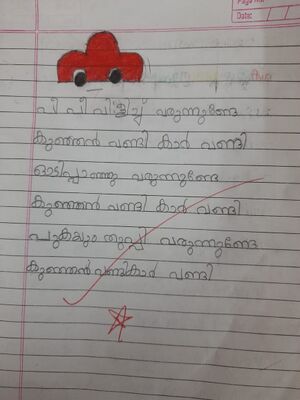 Page No:
Date:
പീ പീ വിളിച്ച് വരുന്നുണ്ടേ
കുഞ്ഞൻ വണ്ടി കാർ വണ്ടി
ഓടിപ്പാഞ്ഞു വരുന്നുണ്ടേ
കുഞ്ഞൻ വണ്ടി കാർ വണ്ടി
പുകയും തുപ്പി വരുന്നുണ്ടേ
കുഞ്ഞൻ വണ്ടികാർ വണ്ടി